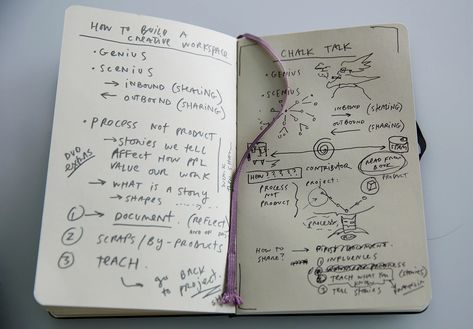 HOW TO BUILD A
CREATIVE WORKSPACE
• GENIUS
• SCENIUS
→ INBOUND (STEALING)
← OUTBOUND (SHARING)
• PROCESS NOT PRODUCT
→ STORIES WE TELL
AFFECT HOW PPL
VALUE OUR WORK
DVD
EXTRAS
→ WHAT IS A STORY
→ SHAPES
① → DOCUMENT. (REFLECT)
END OF DAY
② SCRAPS/BY-PRODUCTS
③ TEACH.
↳ GO BACK
TO PROJECT.
CHALK TALK
• GENIUS
• SCENIUS
INBOUND (STEALING)
→
OUTBOUND
← (SHARING)
CONTRIBUTOR
READ FROM
BOOK.
HOW????
PROCESS
NOT
PRODUCT
PROJECT:
PRODUCT
PROCESS
HOW TO
SHARE?
① INFLUENCES
② TEACH WHAT YOU
KNOW
③ TELL STORIES